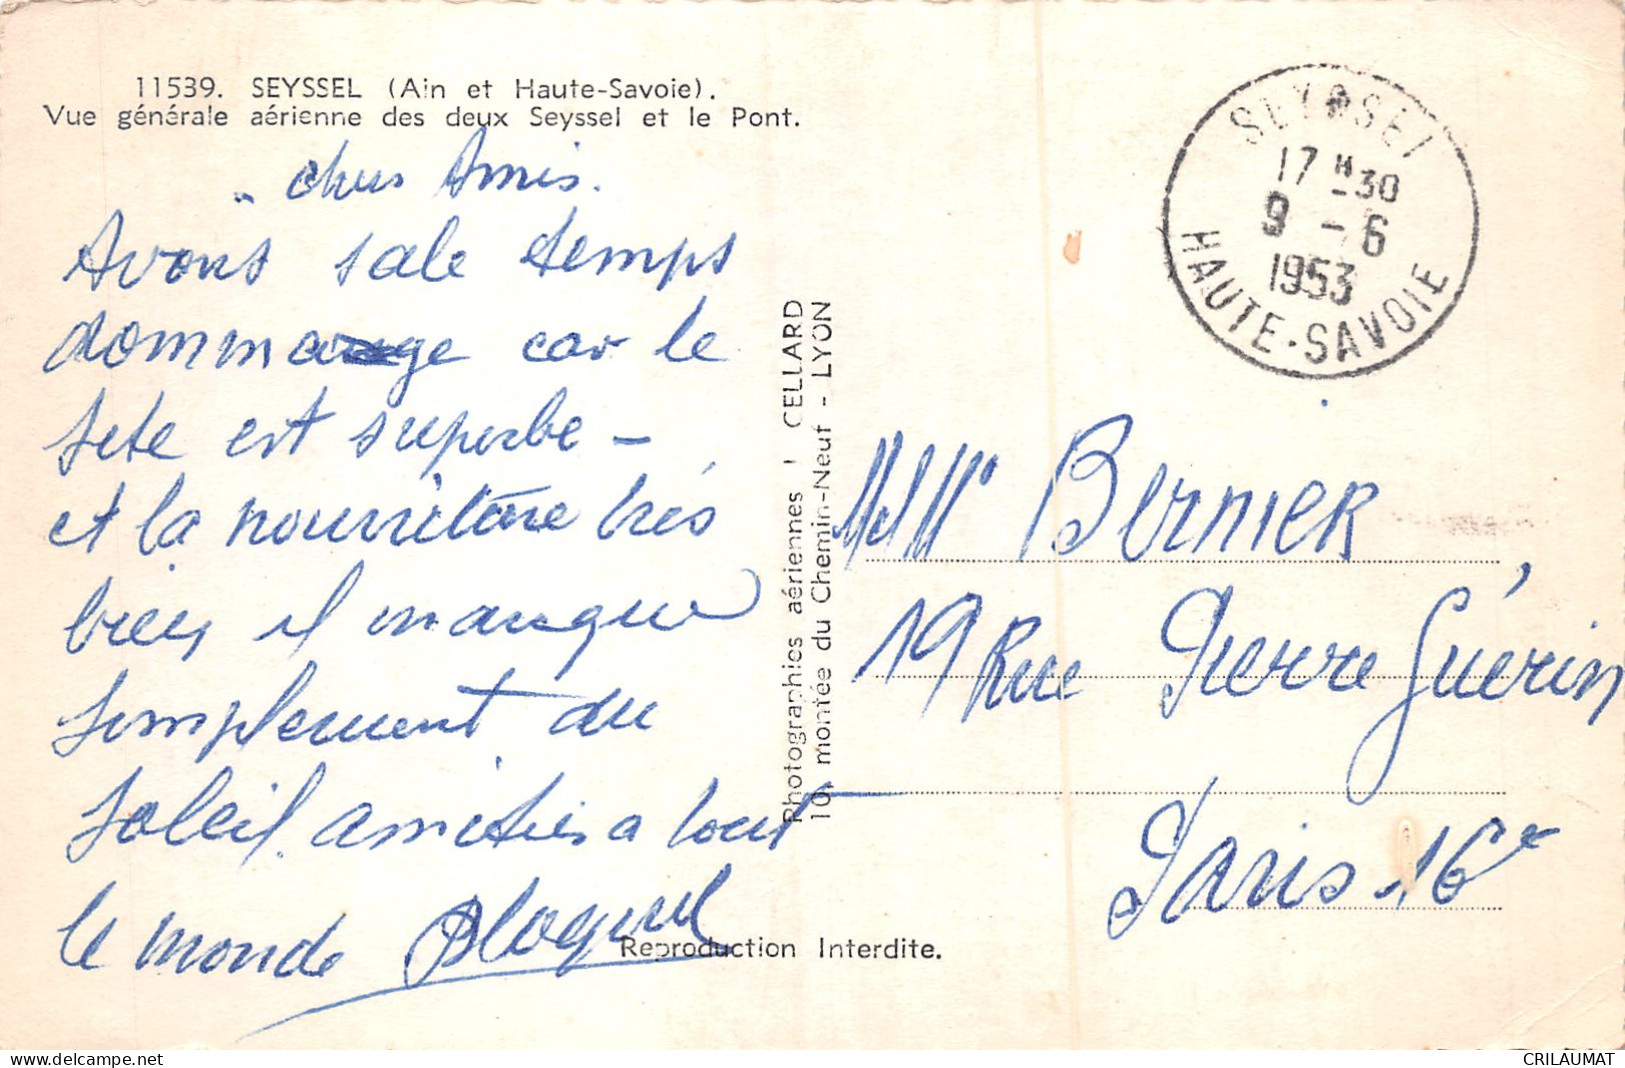 11539. SEYSSEL (Ain et Haute-Savoie).
Vue générale aérienne des deux Seyssel et le Pont.
chers Amis.
Avons sale temps
dommage car le
site est superbe -
et la nourriture très
bien il manque
simplement du
soleil. amitiés a tout
le monde
Photographies aériennes CELLARD
10, montée du Chemin-Neuf - LYON
Reproduction Interdite.
SEYSSEL
17 H 30
9 - 6
1953
HAUTE-SAVOIE
Bernier
19 Rue Pierre Guérin
Paris 16e
delcampe.net
CRILAUMAT